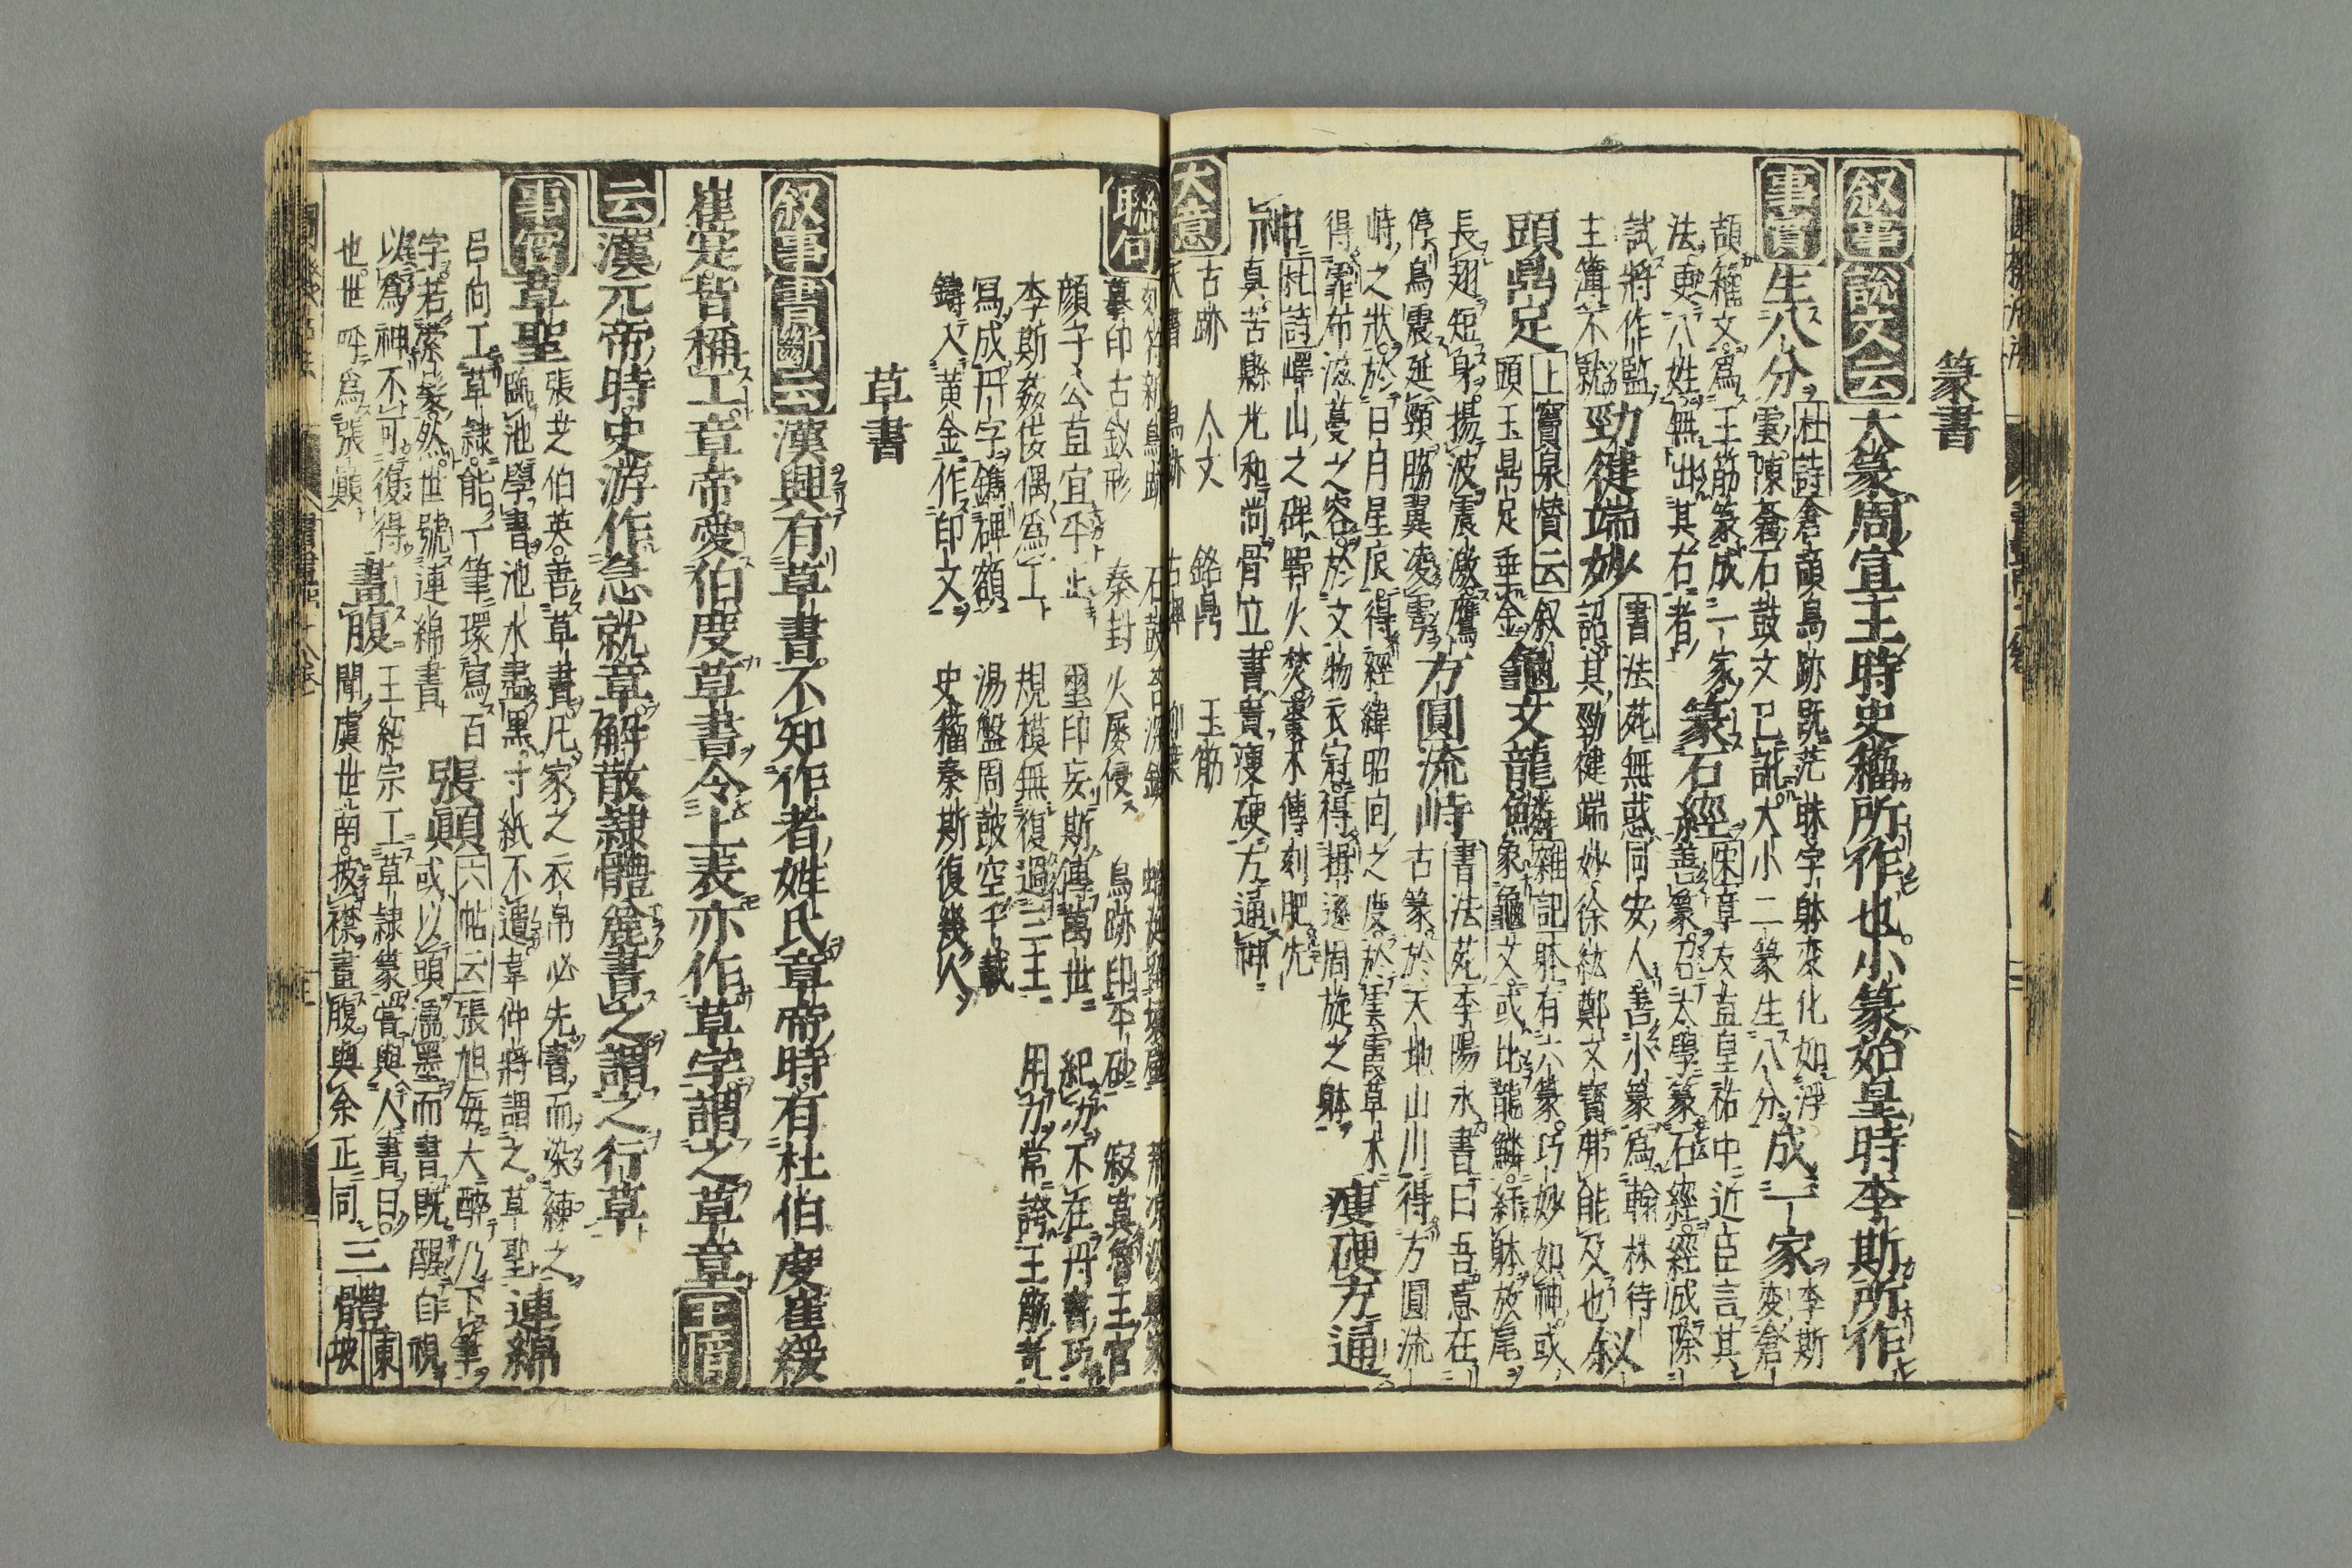 篆書
叙事 說文云 大篆周宣王時史籀所作也小篆始皇時李斯所作
事實 生八分 杜詩倉頡鳥跡既茫昧字躰変化如浮
雲陳倉石鼓文已訛大小二篆生八分 成一家 李斯変倉
頡籀文爲玉筋篆成一家 篆石經 宋章友直皇祐中近臣言其
法更八姓無出其右者 善篆召太學篆石經經成除
試將作監
主簿不就 勁健端妙 書法苑無惑同安人善小篆爲翰林待
詔其勁健端妙徐鉉鄭文寶弗能及也 釵
頭鼎足 上竇泉贊云釵
頭玉鼎足垂金 龜文龍鱗 雜記躰有六篆巧妙如神或
象龜文或比龍鱗紓躰放尾
長翅短身揚波震激鷹
停鳥震延頸脇翼凌雲 方圓流峙 書法苑李陽永書曰吾意在
古篆於天地山川得方圓流
峙之狀於日月星辰得經緯昭回之度於雲霞草木
得霏布滋蔓之容於文物衣冠得揖遜周旋之躰 瘦硬方通
神 杜詩嶧山之碑野火焚棗木傳刻肥失
真苦縣光和尚骨立書貴瘦硬方通神
大意 古跡 人文 銘鼎 玉筋
聯句
摹印古釵形 秦封火屡侵 鳥跡印平砂 寂寞魯王宮
顔字公直宜平正 璽印妄斯傳萬世 紀功不在丹書巧
李斯姦佞偶爲工 規模無復過三王 用力常誇玉筋竒
冩成丹字鐫碑額 湯盤周鼓空千載
鑄入黄金作印文 史籀秦斯復幾人
草書
叙事 書斷云 漢興有草書不知作者姓氏章帝時有杜伯度崔緩
崔寔皆稱工章帝愛伯度草書令上表亦作草字謂之草章 王愔
云 漢元帝時史游作急就章解散隷體麄書之謂之行草
事實 草聖 張芝伯英善草書凡家之衣帛必先書而染練之
臨池學書池水盡黒寸紙不遺韋仲將謂之草聖 連綿
呂向工草隷能一筆環冩百
字若縈髪然世號連綿書 張顛 六帖云張旭毎大醉乃下筆
或以頭濡墨而書既醒自視
以爲神不可復得
也世呼爲張顛 畫腹 王紹宗工草隷篆嘗與人書曰
聞虞世南披襟畫腹與余正同 三體 東坡